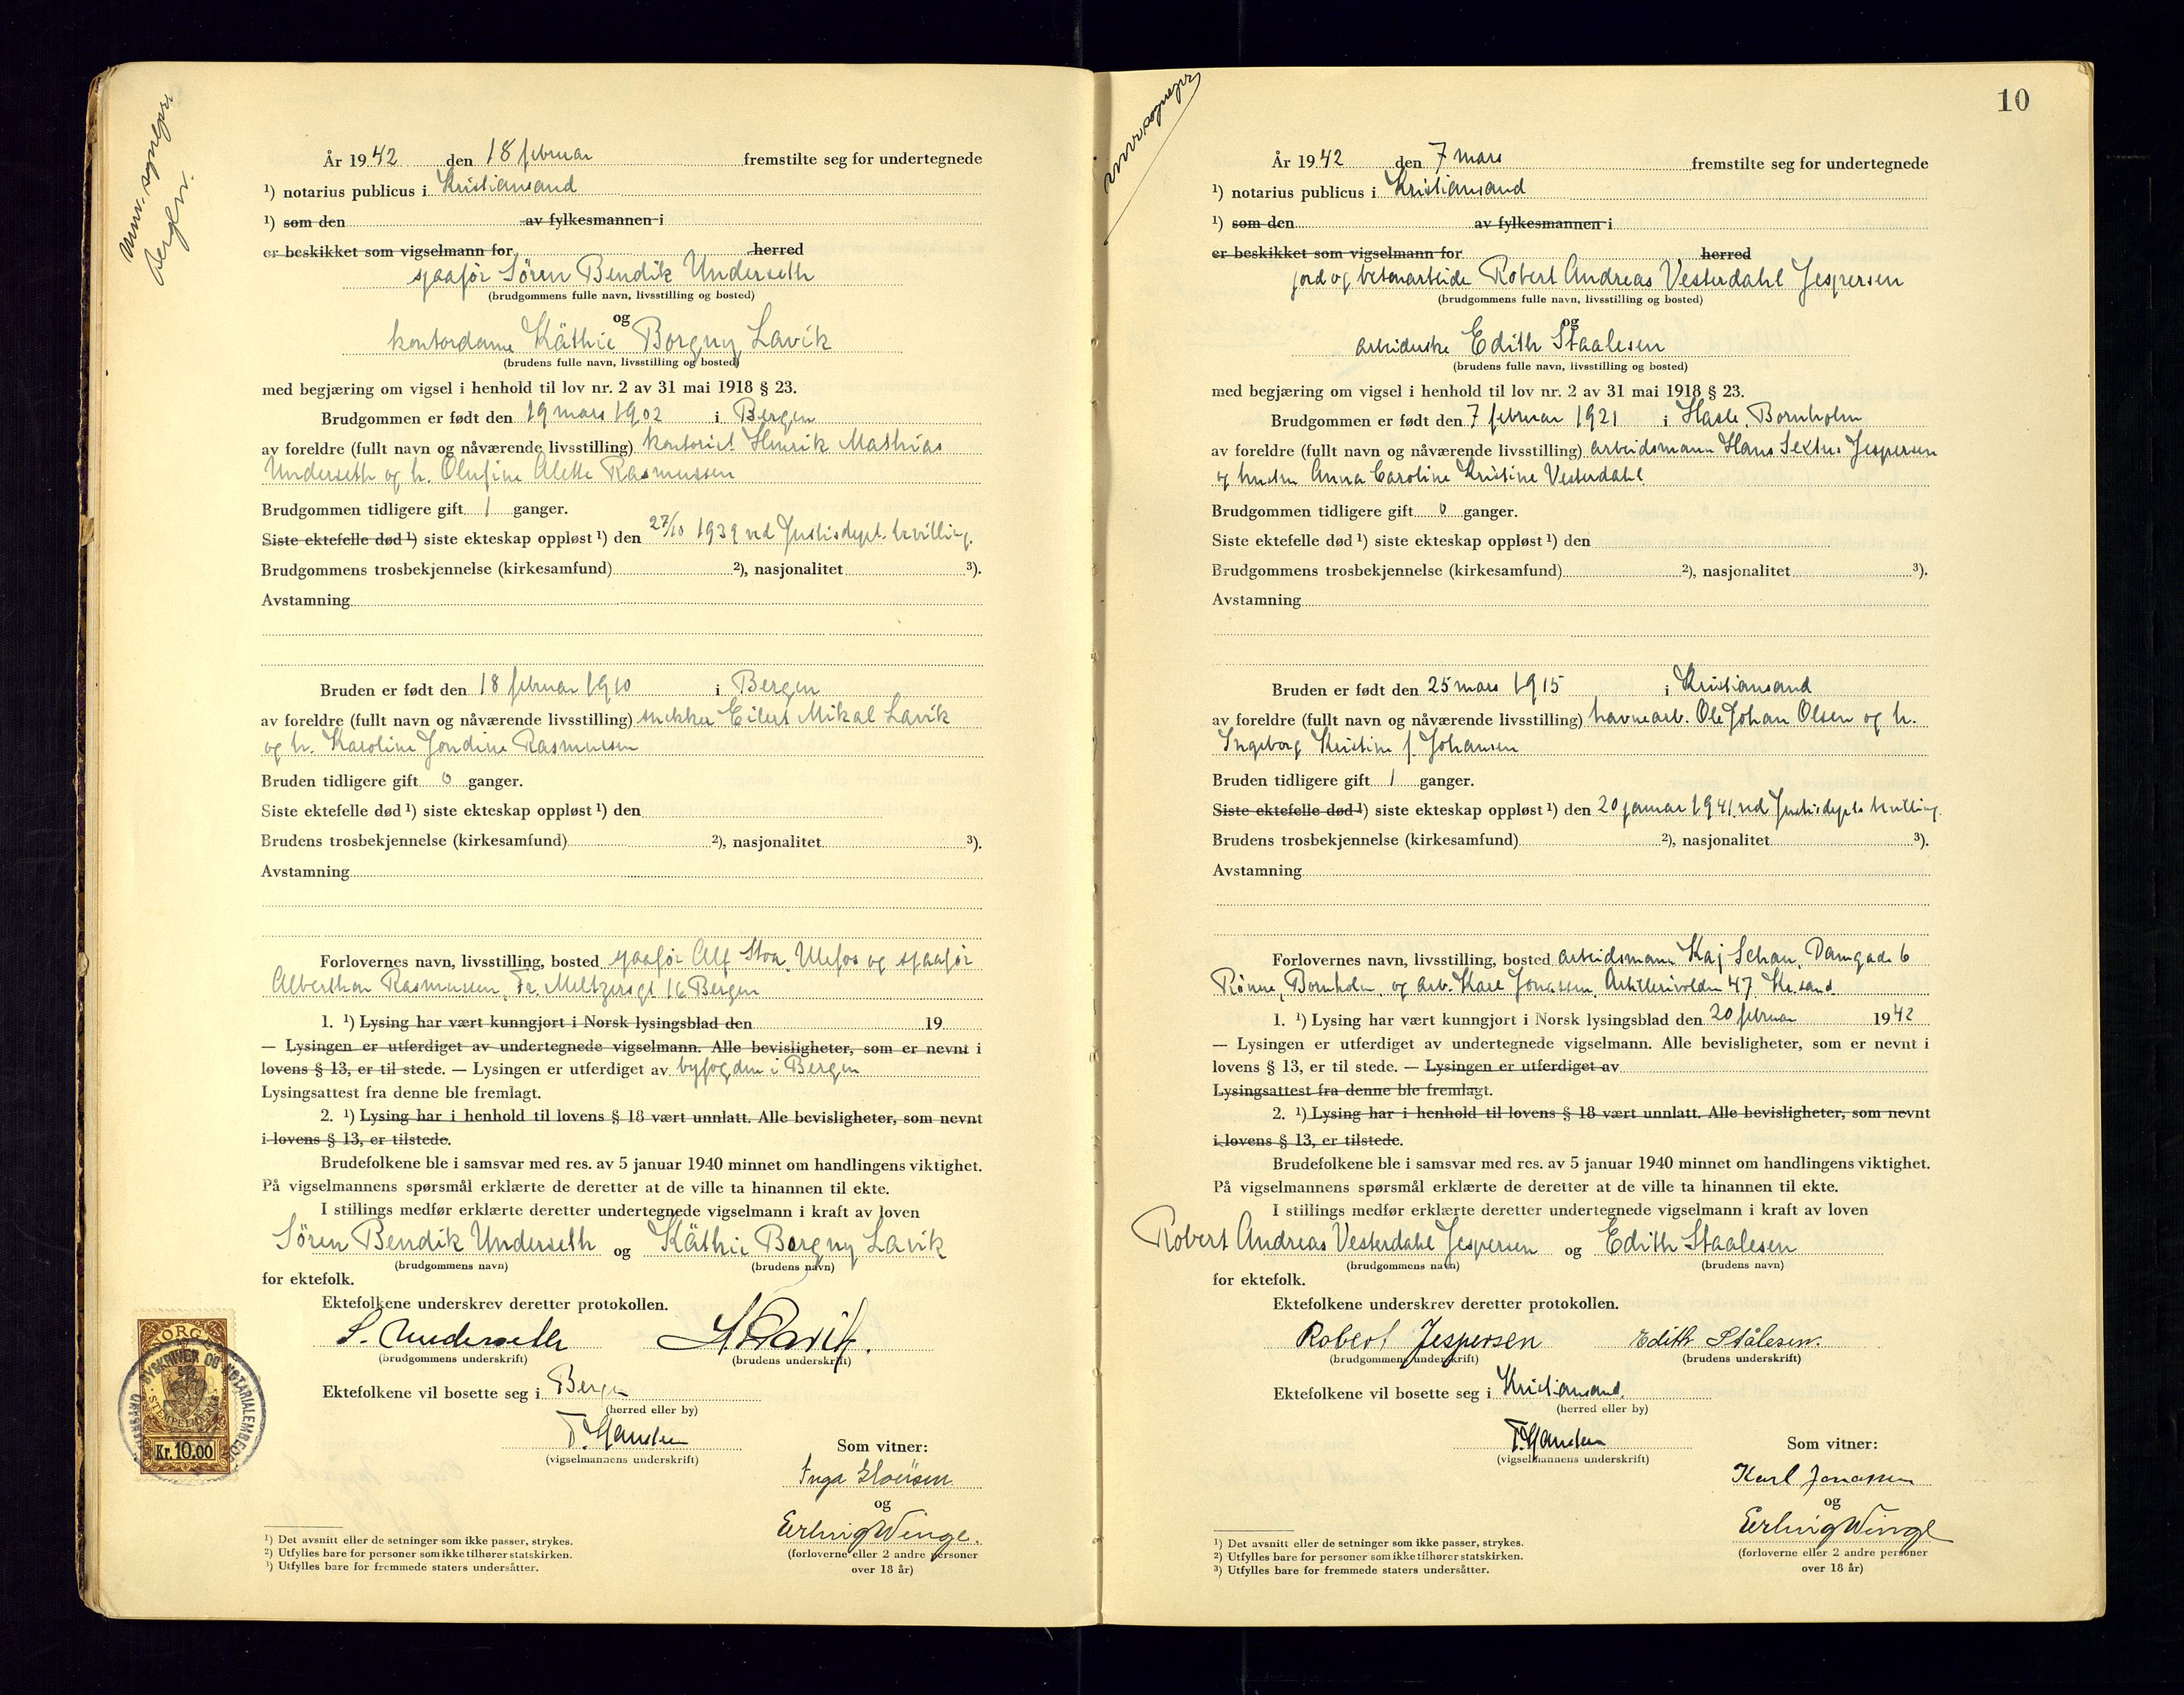 Bergen.
År 1942 den 18 februar fremstilte seg for undertegnede
¹) notarius publicus i Kristiansand
¹) som den av fylkesmannen i
er beskikket som vigselmann for herred
Sören Bendik Underseth
(brudgommens fulle navn, livsstilling og bosted)
og
kontordame Käthie Borgny Lavik
(brudens fulle navn, livsstilling og bosted)
med begjæring om vigsel i henhold til lov nr. 2 av 31 mai 1918 § 23.
Brudgommen er født den 19 mars 1902 i Bergen
av foreldre (fullt navn og nåværende livsstilling) kontorist Henrik Mathias
Underseth og h. Olufine Alette Rasmussen
Brudgommen tidligere gift 1 ganger.
Siste ektefelle død ¹) siste ekteskap oppløst ¹) den 27/10 1939 ved Justisdept. bevilling.
Brudgommens trosbekjennelse (kirkesamfund) ²), nasjonalitet ³).
Avstamning
Bruden er født den 18 februar 1910 i Bergen
av foreldre (fullt navn og nåværende livsstilling) snekker Eilert Mikal Lavik
og h. Karoline Jondine Rasmussen
Bruden tidligere gift 0 ganger.
Siste ektefelle død ¹) siste ekteskap oppløst ¹) den
Brudens trosbekjennelse (kirkesamfund) ²), nasjonalitet ³).
Avstamning
Forlovernes navn, livsstilling, bosted Alf Stoa, Ulefos og
Alberthon Rasmussen, Fr. Meltzersgt 16 Bergen
1. ¹) Lysing har vært kunngjort i Norsk lysingsblad den 19
— Lysingen er utferdiget av undertegnede vigselmann. Alle bevisligheter, som er nevnt i
lovens § 13, er til stede. — Lysingen er utferdiget av byfogden i Bergen
Lysingsattest fra denne ble fremlagt.
2. ¹) Lysing har i henhold til lovens § 18 vært unnlatt. Alle bevisligheter, som nevnt
i lovens § 13, er tilstede.
Brudefolkene ble i samsvar med res. av 5 januar 1940 minnet om handlingens viktighet.
På vigselmannens spørsmål erklærte de deretter at de ville ta hinannen til ekte.
I stillings medfør erklærte deretter undertegnede vigselmann i kraft av loven
Sören Bendik Underseth og Käthie Borgny Lavik
(brudgommens navn) (brudens navn)
for ektefolk.
Ektefolkene underskrev deretter protokollen.
S. Underseth K. Lavik.
(brudgommens underskrift) (brudens underskrift)
Ektefolkene vil bosette seg i Bergen
(herred eller by)
T. Hansen
(vigselmannens underskrift)
Som vitner:
Inga
og
Erling Winge.
(forloverne eller 2 andre personer
over 18 år)
¹) Det avsnitt eller de setninger som ikke passer, strykes.
²) Utfylles bare for personer som ikke tilhører statskirken.
³) Utfylles bare for fremmede staters undersåtter.
NORGE
STEMPELMERKE
Kr. 10.00
BYSKRIVER OG NOTARIALEMBEDE
10
År 1942 den 7 mars fremstilte seg for undertegnede
¹) notarius publicus i Kristiansand
¹) som den av fylkesmannen i
er beskikket som vigselmann for herred
jord og betonarbeider Robert Andreas Vesterdahl Jespersen
(brudgommens fulle navn, livsstilling og bosted)
og
arbeiderske Edith Staalesen
(brudens fulle navn, livsstilling og bosted)
med begjæring om vigsel i henhold til lov nr. 2 av 31 mai 1918 § 23.
Brudgommen er født den 7 februar 1921 i Hasle, Bornholm
av foreldre (fullt navn og nåværende livsstilling) arbeidsmann Hans Sextus Jespersen
og hustru Anna Caroline Kristine Vesterdahl
Brudgommen tidligere gift 0 ganger.
Siste ektefelle død ¹) siste ekteskap oppløst ¹) den
Brudgommens trosbekjennelse (kirkesamfund) ²), nasjonalitet ³).
Avstamning
Bruden er født den 25 mars 1915 i Kristiansand
av foreldre (fullt navn og nåværende livsstilling) havnearb. Ole Johan Olsen og h.
Ingeborg Kristine f. Johansen
Bruden tidligere gift 1 ganger.
Siste ektefelle død ¹) siste ekteskap oppløst ¹) den 20 januar 1941 ved Justisdepts bevilling.
Brudens trosbekjennelse (kirkesamfund) ²), nasjonalitet ³).
Avstamning
Forlovernes navn, livsstilling, bosted arbeidsmann Kaj Schau, Damgade 6
Rönne, Bornholm, og arb. Karl Jonassen, Artillerivolden 47 Kr.sand
1. ¹) Lysing har vært kunngjort i Norsk lysingsblad den 20 februar 1942
— Lysingen er utferdiget av undertegnede vigselmann. Alle bevisligheter, som er nevnt i
lovens § 13, er til stede. — Lysingen er utferdiget av
Lysingsattest fra denne ble fremlagt.
2. ¹) Lysing har i henhold til lovens § 18 vært unnlatt. Alle bevisligheter, som nevnt
i lovens § 13, er tilstede.
Brudefolkene ble i samsvar med res. av 5 januar 1940 minnet om handlingens viktighet.
På vigselmannens spørsmål erklærte de deretter at de ville ta hinannen til ekte.
I stillings medfør erklærte deretter undertegnede vigselmann i kraft av loven
Robert Andreas Vesterdahl Jespersen og Edith Staalesen
(brudgommens navn) (brudens navn)
for ektefolk.
Ektefolkene underskrev deretter protokollen.
Robert Jespersen Edith Stålesen.
(brudgommens underskrift) (brudens underskrift)
Ektefolkene vil bosette seg i Kristiansand
(herred eller by)
T. Hansen
(vigselmannens underskrift)
Som vitner:
Karl Jonassen
og
Erling Winge
(forloverne eller 2 andre personer
over 18 år)
¹) Det avsnitt eller de setninger som ikke passer, strykes.
²) Utfylles bare for personer som ikke tilhører statskirken.
³) Utfylles bare for fremmede staters undersåtter.